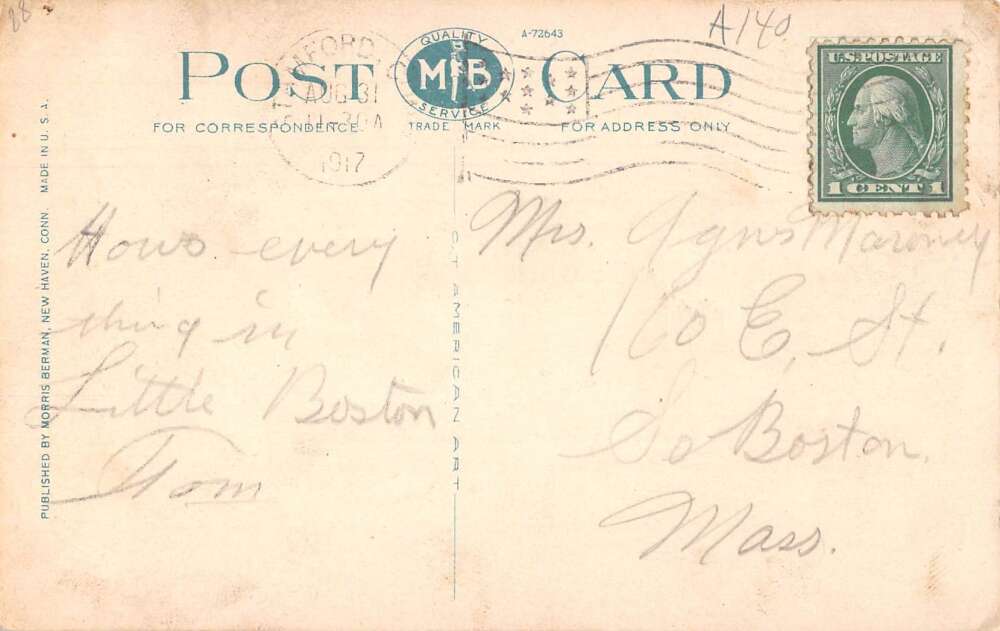 28
A-72643
A140
POST CARD
QUALITY
M B
SERVICE
TRADE MARK
FOR CORRESPONDENCE
FOR ADDRESS ONLY
AUG 31
1917
U.S. POSTAGE
1 CENT 1
PUBLISHED BY MORRIS BERMAN, NEW HAVEN, CONN. MADE IN U. S. A.
C. T. AMERICAN ART
Hows every
thing in
Little Boston
Tom
Mrs. Agnes Maroney
160 E, St.
So Boston.
Mass.